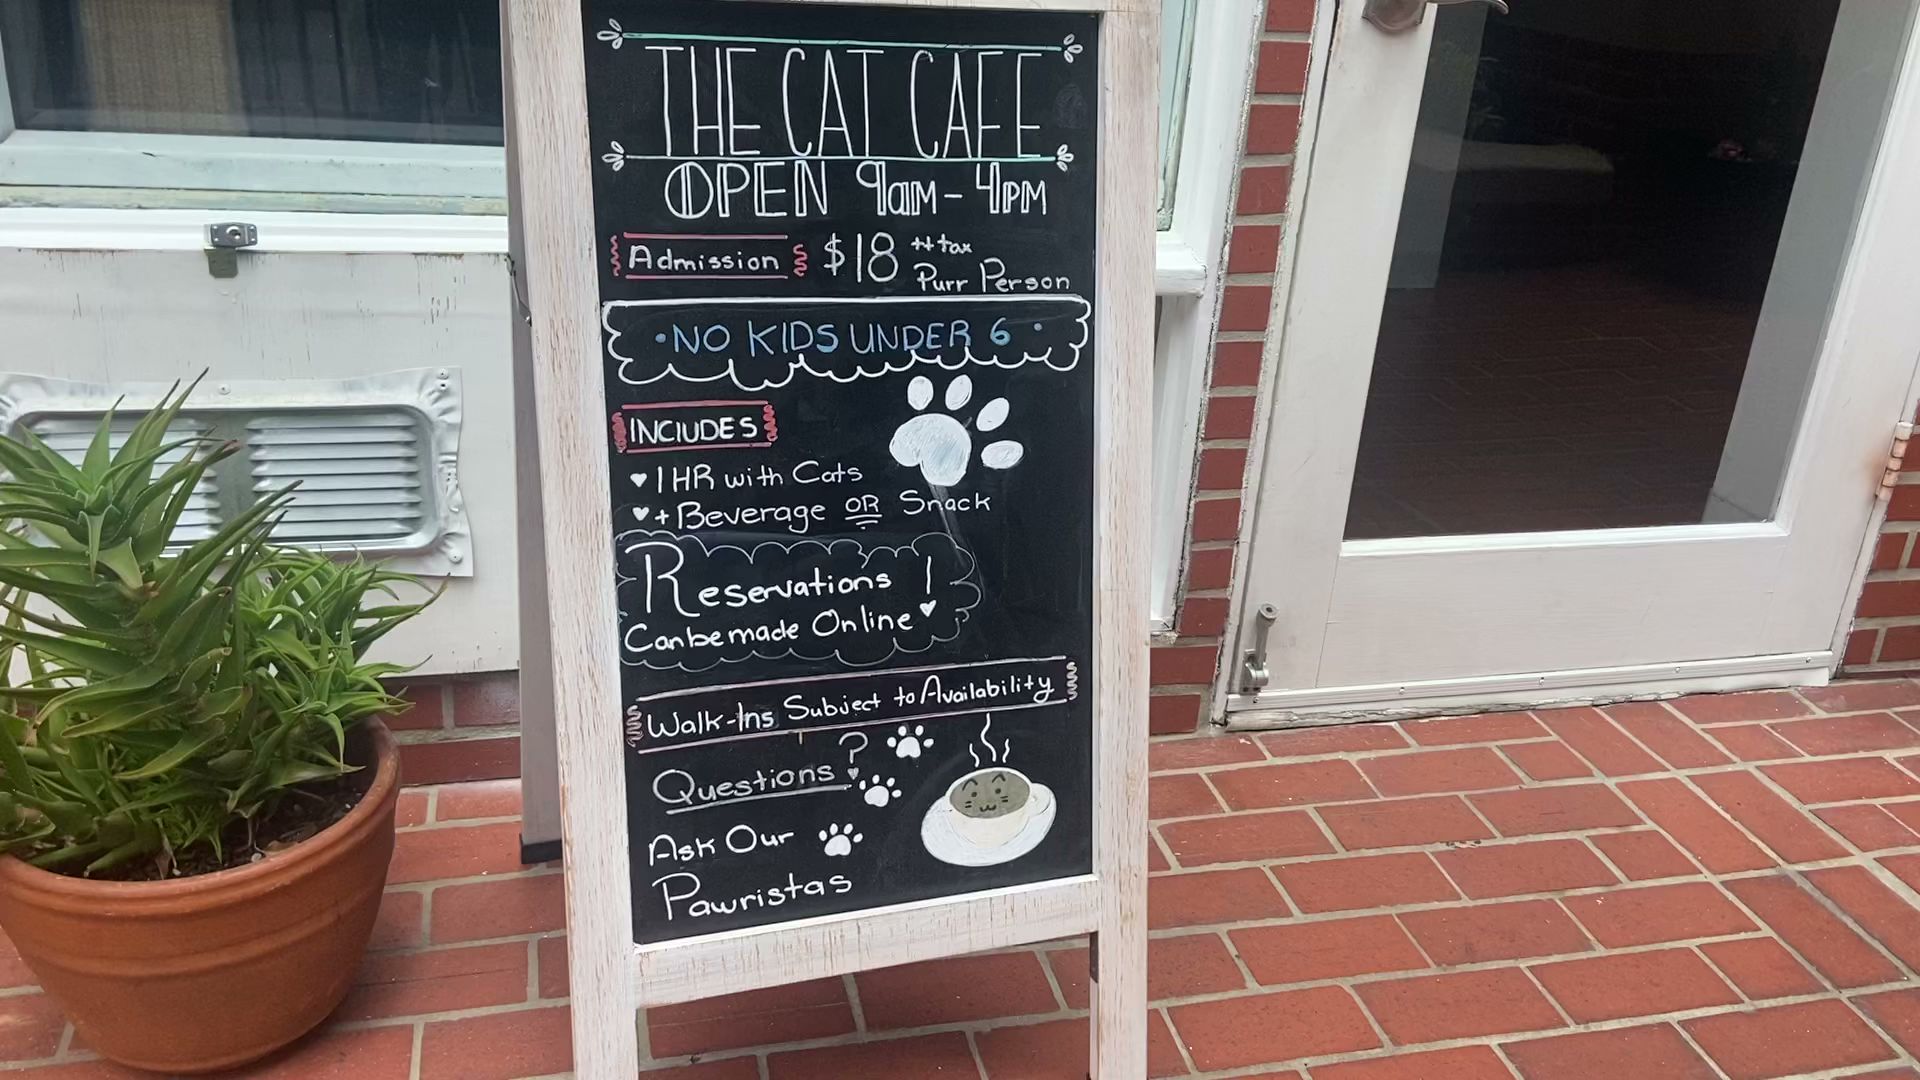 THE CAT CAFE
OPEN 9am - 4pm
Admission $18 ++ tax
Purr Person
• NO KIDS UNDER 6 •
INCLUDES
♥ 1 HR with Cats
♥ + Beverage OR Snack
Reservations !
Can be made Online ♥
Walk-Ins Subject to Availability
Questions ?
Ask Our
Pawristas